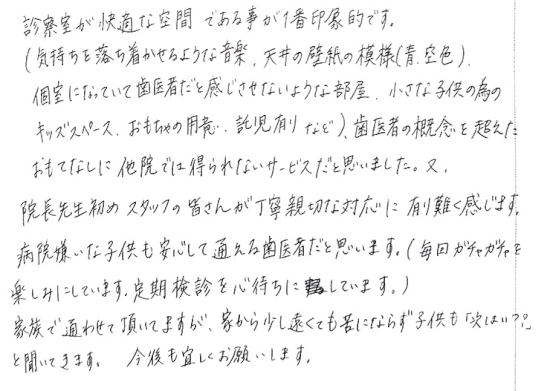 診察室が快適な空間である事が1番印象的です。
(気持ちを落ち着かせるような音楽、天井の壁紙の模様(青.空色)、
個室になっていて歯医者だと感じさせないような部屋、小さな子供の為の
キッズスペース、おもちゃの用意、託児有りなど)、歯医者の概念を超えた
おもてなしに他院では得られないサービスだと思いました。又、
院長先生初めスタッフの皆さんが丁寧親切な対応に有難く感じます。
病院嫌いな子供も安心して通える歯医者だと思います。(毎回ガチャガチャを
楽しみにしています.定期検診を心待ちにしています。)
家族で通わせて頂いてますが、家から少し遠くても苦にならず子供も「次はいつ?」
と聞いてきます。 今後も宜しくお願いします。